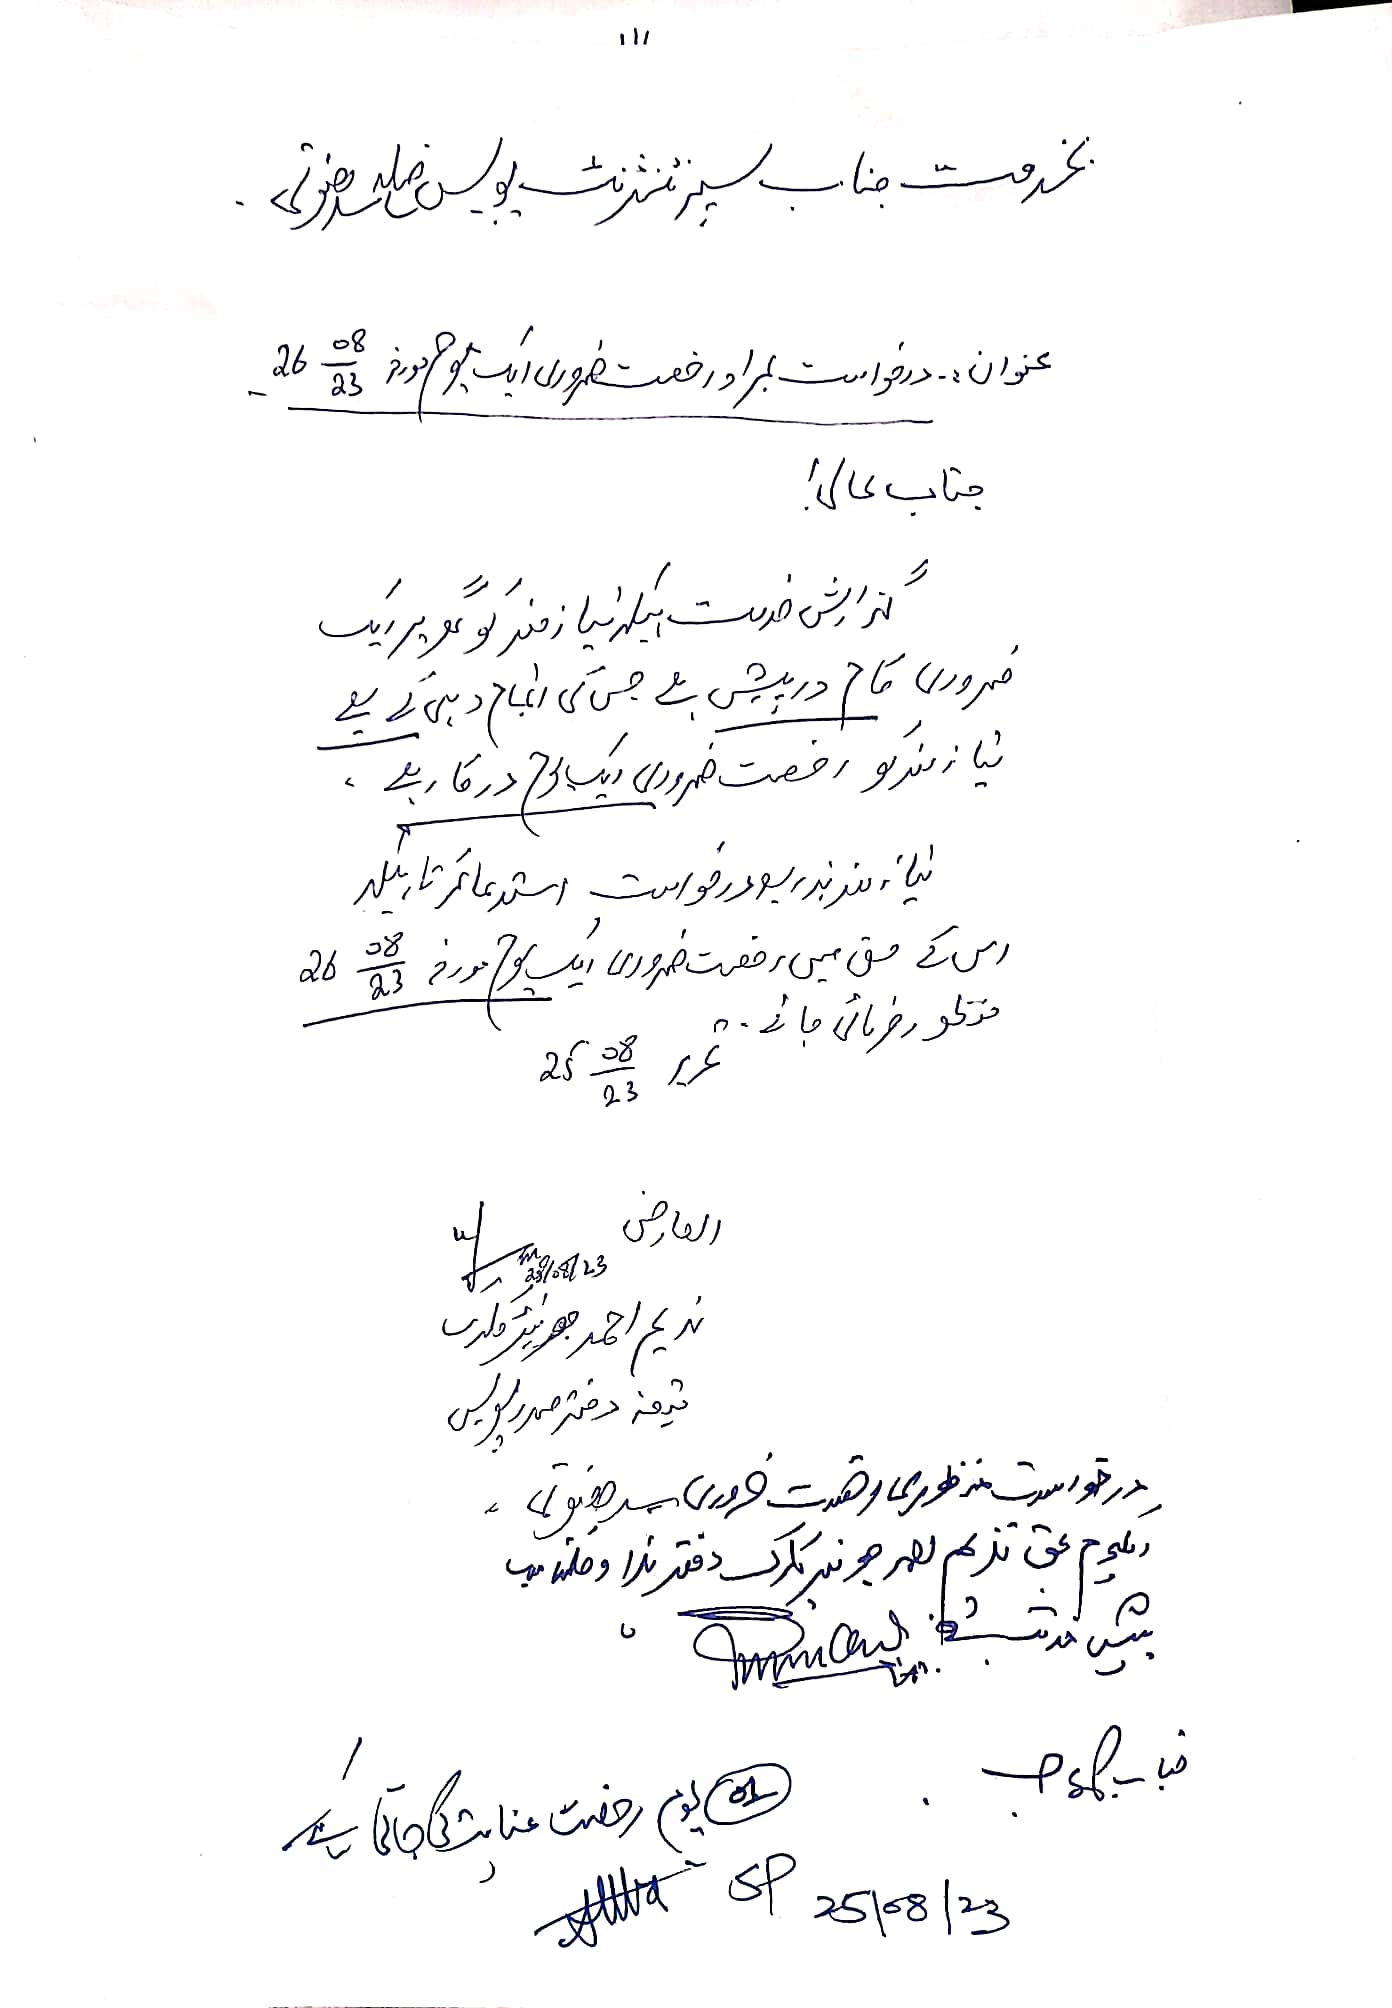 بخدمت جناب سپرنٹنڈنٹ پولیس ضلع سدھنوتی۔
عنوان:۔ درخواست بمراد رخصت ضروری ایک یوم مورخہ 26 08/23
جناب عالی!
گزارش خدمت ہیکہ نیازمند کو گھر پر ایک
ضروری کام درپیش ہے جس کی انجام دہی کے لیے
نیازمند کو رخصت ضروری ایک یوم درکار ہے۔
نیازمند بذریعہ درخواست استدعا کرتا ہیکہ
اس کے حق میں رخصت ضروری ایک یوم مورخہ 26 08/23
منظور فرمائی جائے۔ تحریر 25 08/23
العارض
/08/23
ندیم احمد جونیئر کلرک
دفتر صدر پولیس
درخواست منظوری رخصت ضروری
ایکیوم بحق ندیم احمد جونیئر کلرک دفتر ہذا
پیش خدمت ہے
جناب
01 یوم رخصت عنایت کی جاتی ہے
SP 25/08/23